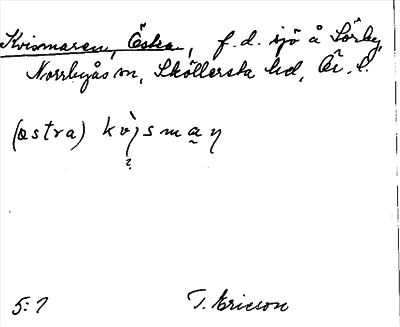 Kvismaren, Östra, f.d. sjö å Sörby,
Norrbyås sn, Sköllersta hd, Ör. l.
(östra) kvi̇̀sman
?
5:7 T. Ericson